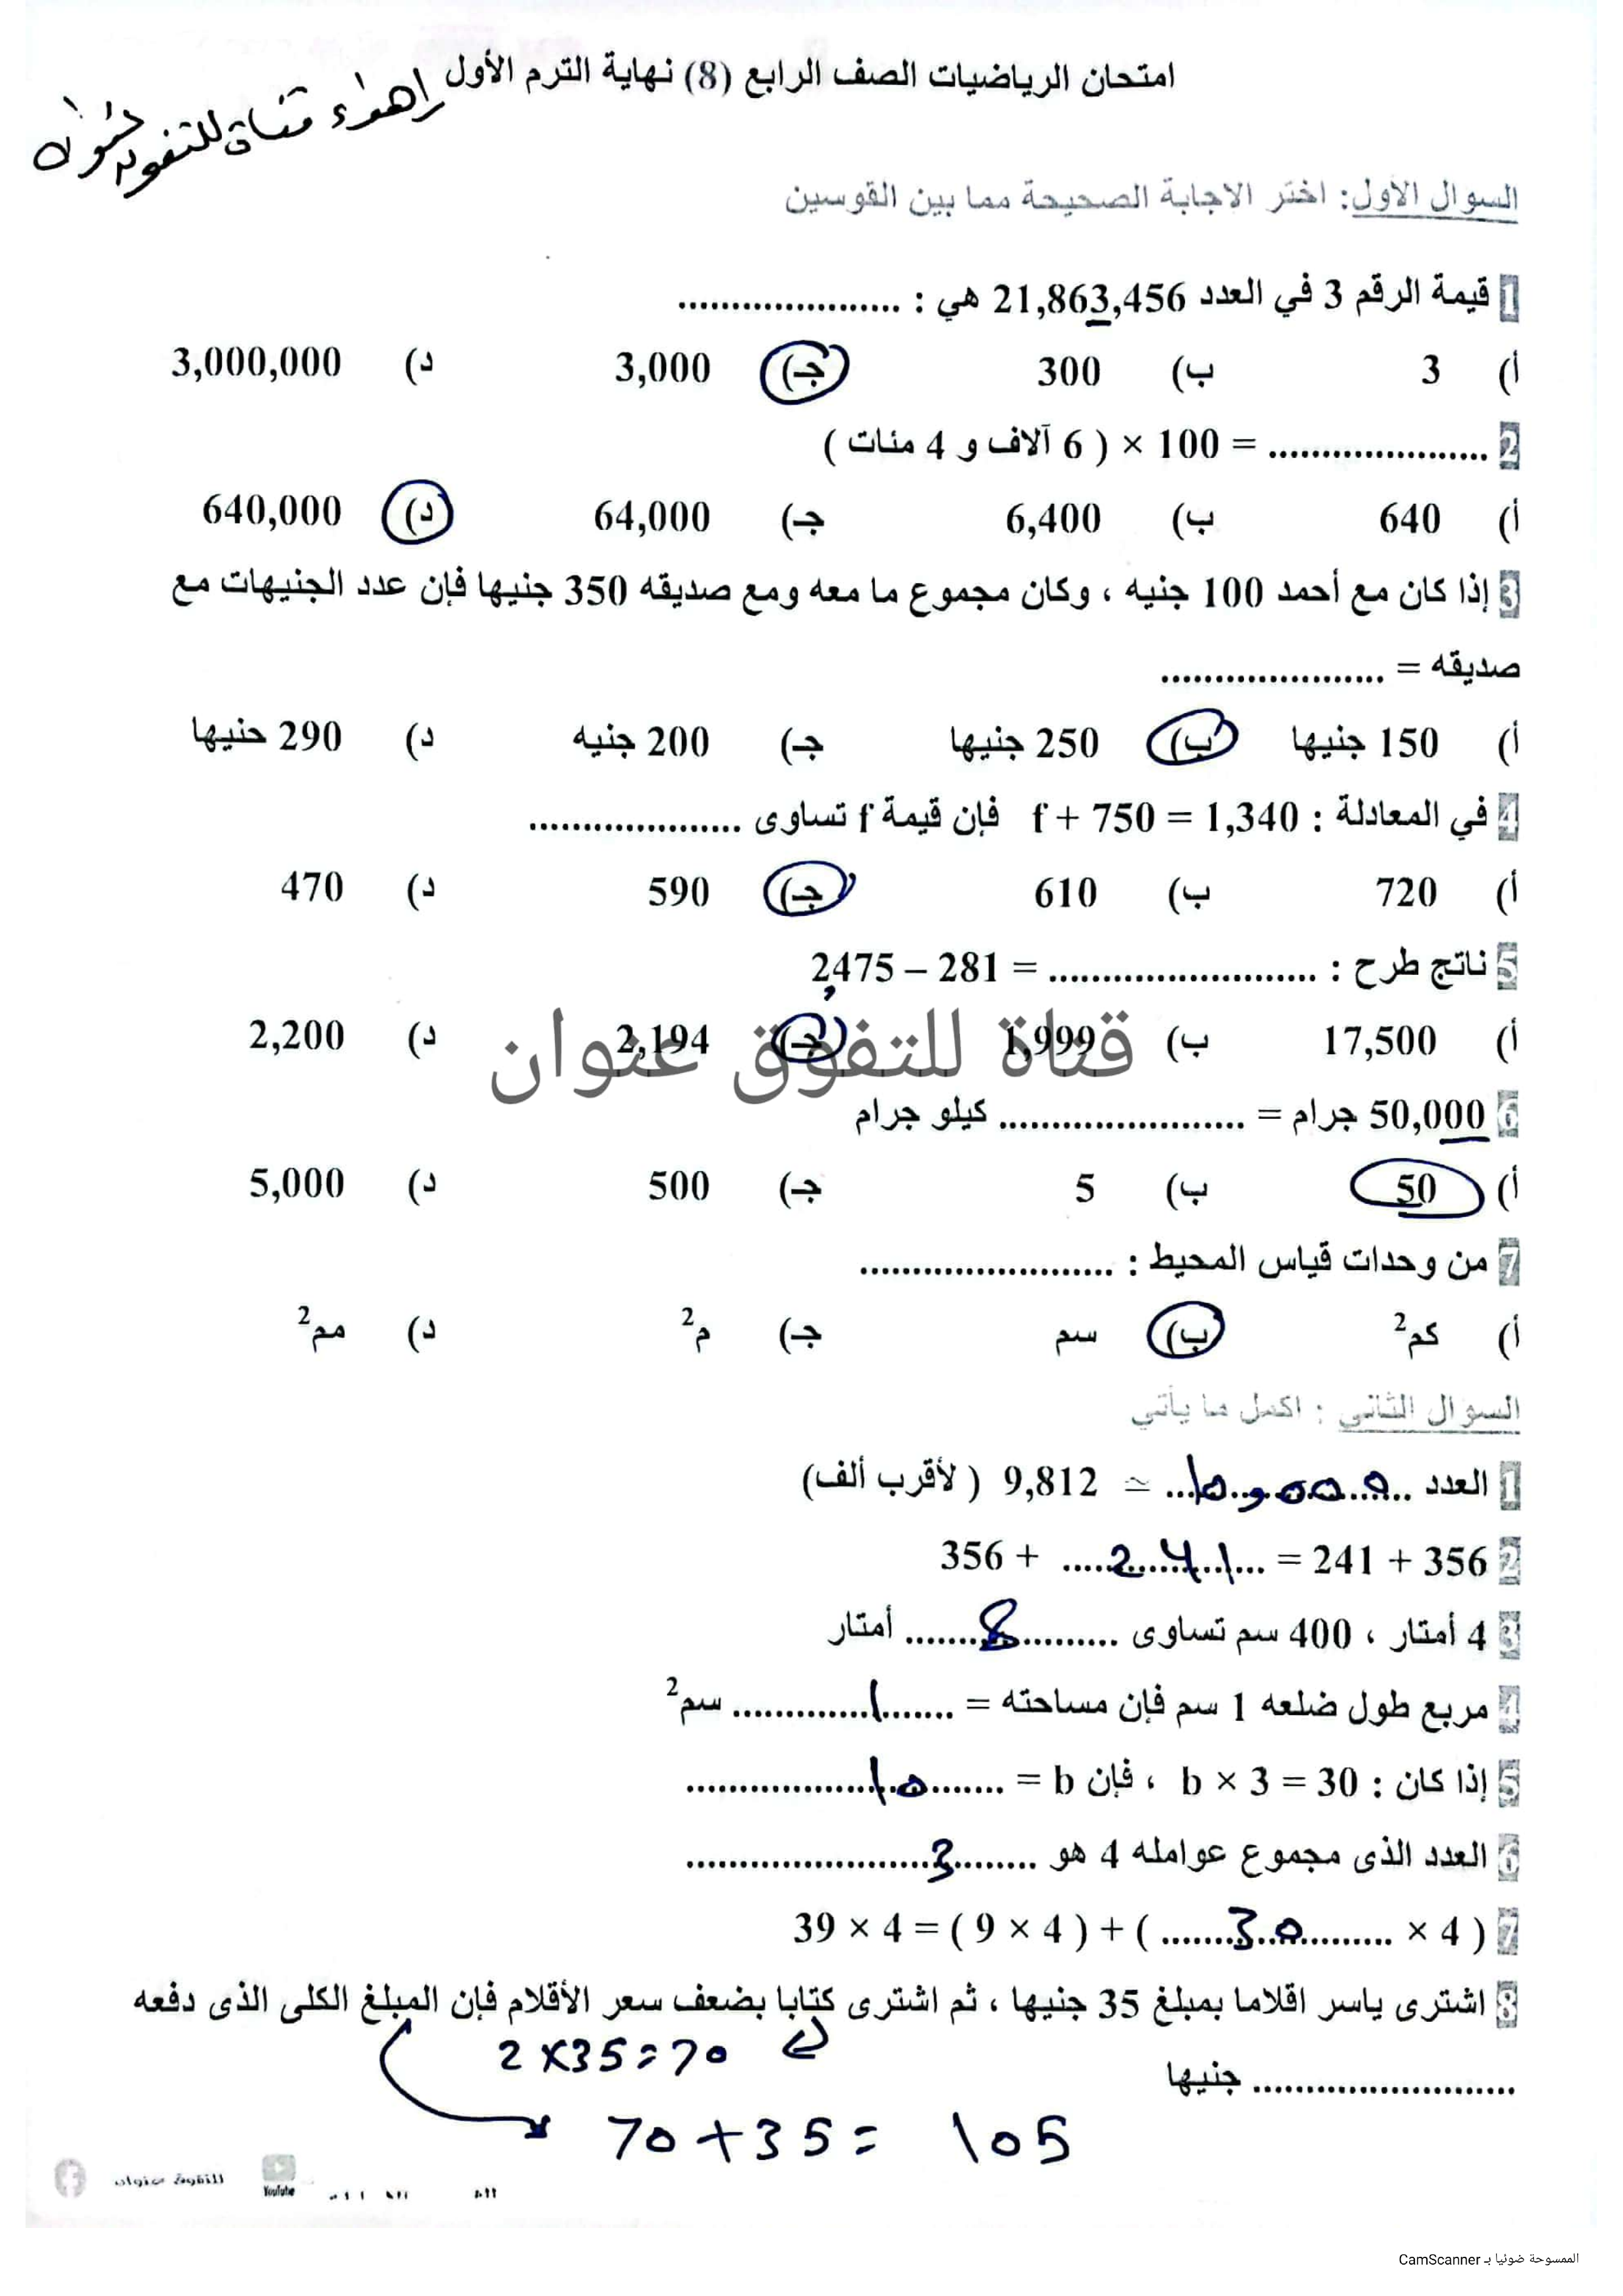 امتحان الرياضيات الصف الرابع (8) نهاية الترم الأول
اهداء قناة للتفوق عنوان
السؤال الأول: اختر الاجابة الصحيحة مما بين القوسين
1 قيمة الرقم 3 في العدد 21,863,456 هي : .....................
أ) 3 ب) 300 جـ) 3,000 د) 3,000,000
2 ..................... = 100 × ( 6 آلاف و 4 مئات )
أ) 640 ب) 6,400 جـ) 64,000 د) 640,000
3 إذا كان مع أحمد 100 جنيه ، وكان مجموع ما معه ومع صديقه 350 جنيها فإن عدد الجنيهات مع
صديقه = .....................
أ) 150 جنيها ب) 250 جنيها جـ) 200 جنيه د) 290 جنيها
4 في المعادلة : f + 750 = 1,340 فإن قيمة f تساوى ....................
أ) 720 ب) 610 جـ) 590 د) 470
5 ناتج طرح : 2,475 – 281 = .........................
أ) 17,500 ب) 1,999 جـ) 2,194 د) 2,200
قناة للتفوق عنوان
6 50,000 جرام = ....................... كيلو جرام
أ) 50 ب) 5 جـ) 500 د) 5,000
7 من وحدات قياس المحيط : ........................
أ) كم² ب) سم جـ) م² د) مم²
السؤال الثاني : اكمل ما يأتي
1 العدد 10,000 ≃ 9,812 ( لأقرب ألف)
2 356 + 241 = 241 + 356
3 4 أمتار ، 400 سم تساوى 8 أمتار
4 مربع طول ضلعه 1 سم فإن مساحته = 1 سم²
5 إذا كان : b × 3 = 30 ، فإن b = 10
6 العدد الذى مجموع عوامله 4 هو 3
7 39 × 4 = ( 9 × 4 ) + ( 30 × 4 )
8 اشترى ياسر اقلاما بمبلغ 35 جنيها ، ثم اشترى كتابا بضعف سعر الأقلام فإن المبلغ الكلى الذى دفعه
2 × 35 = 70
......................... جنيها
70 + 35 = 105
للتفوق عنوان
YouTube
الممسوحة ضوئيا بـ CamScanner